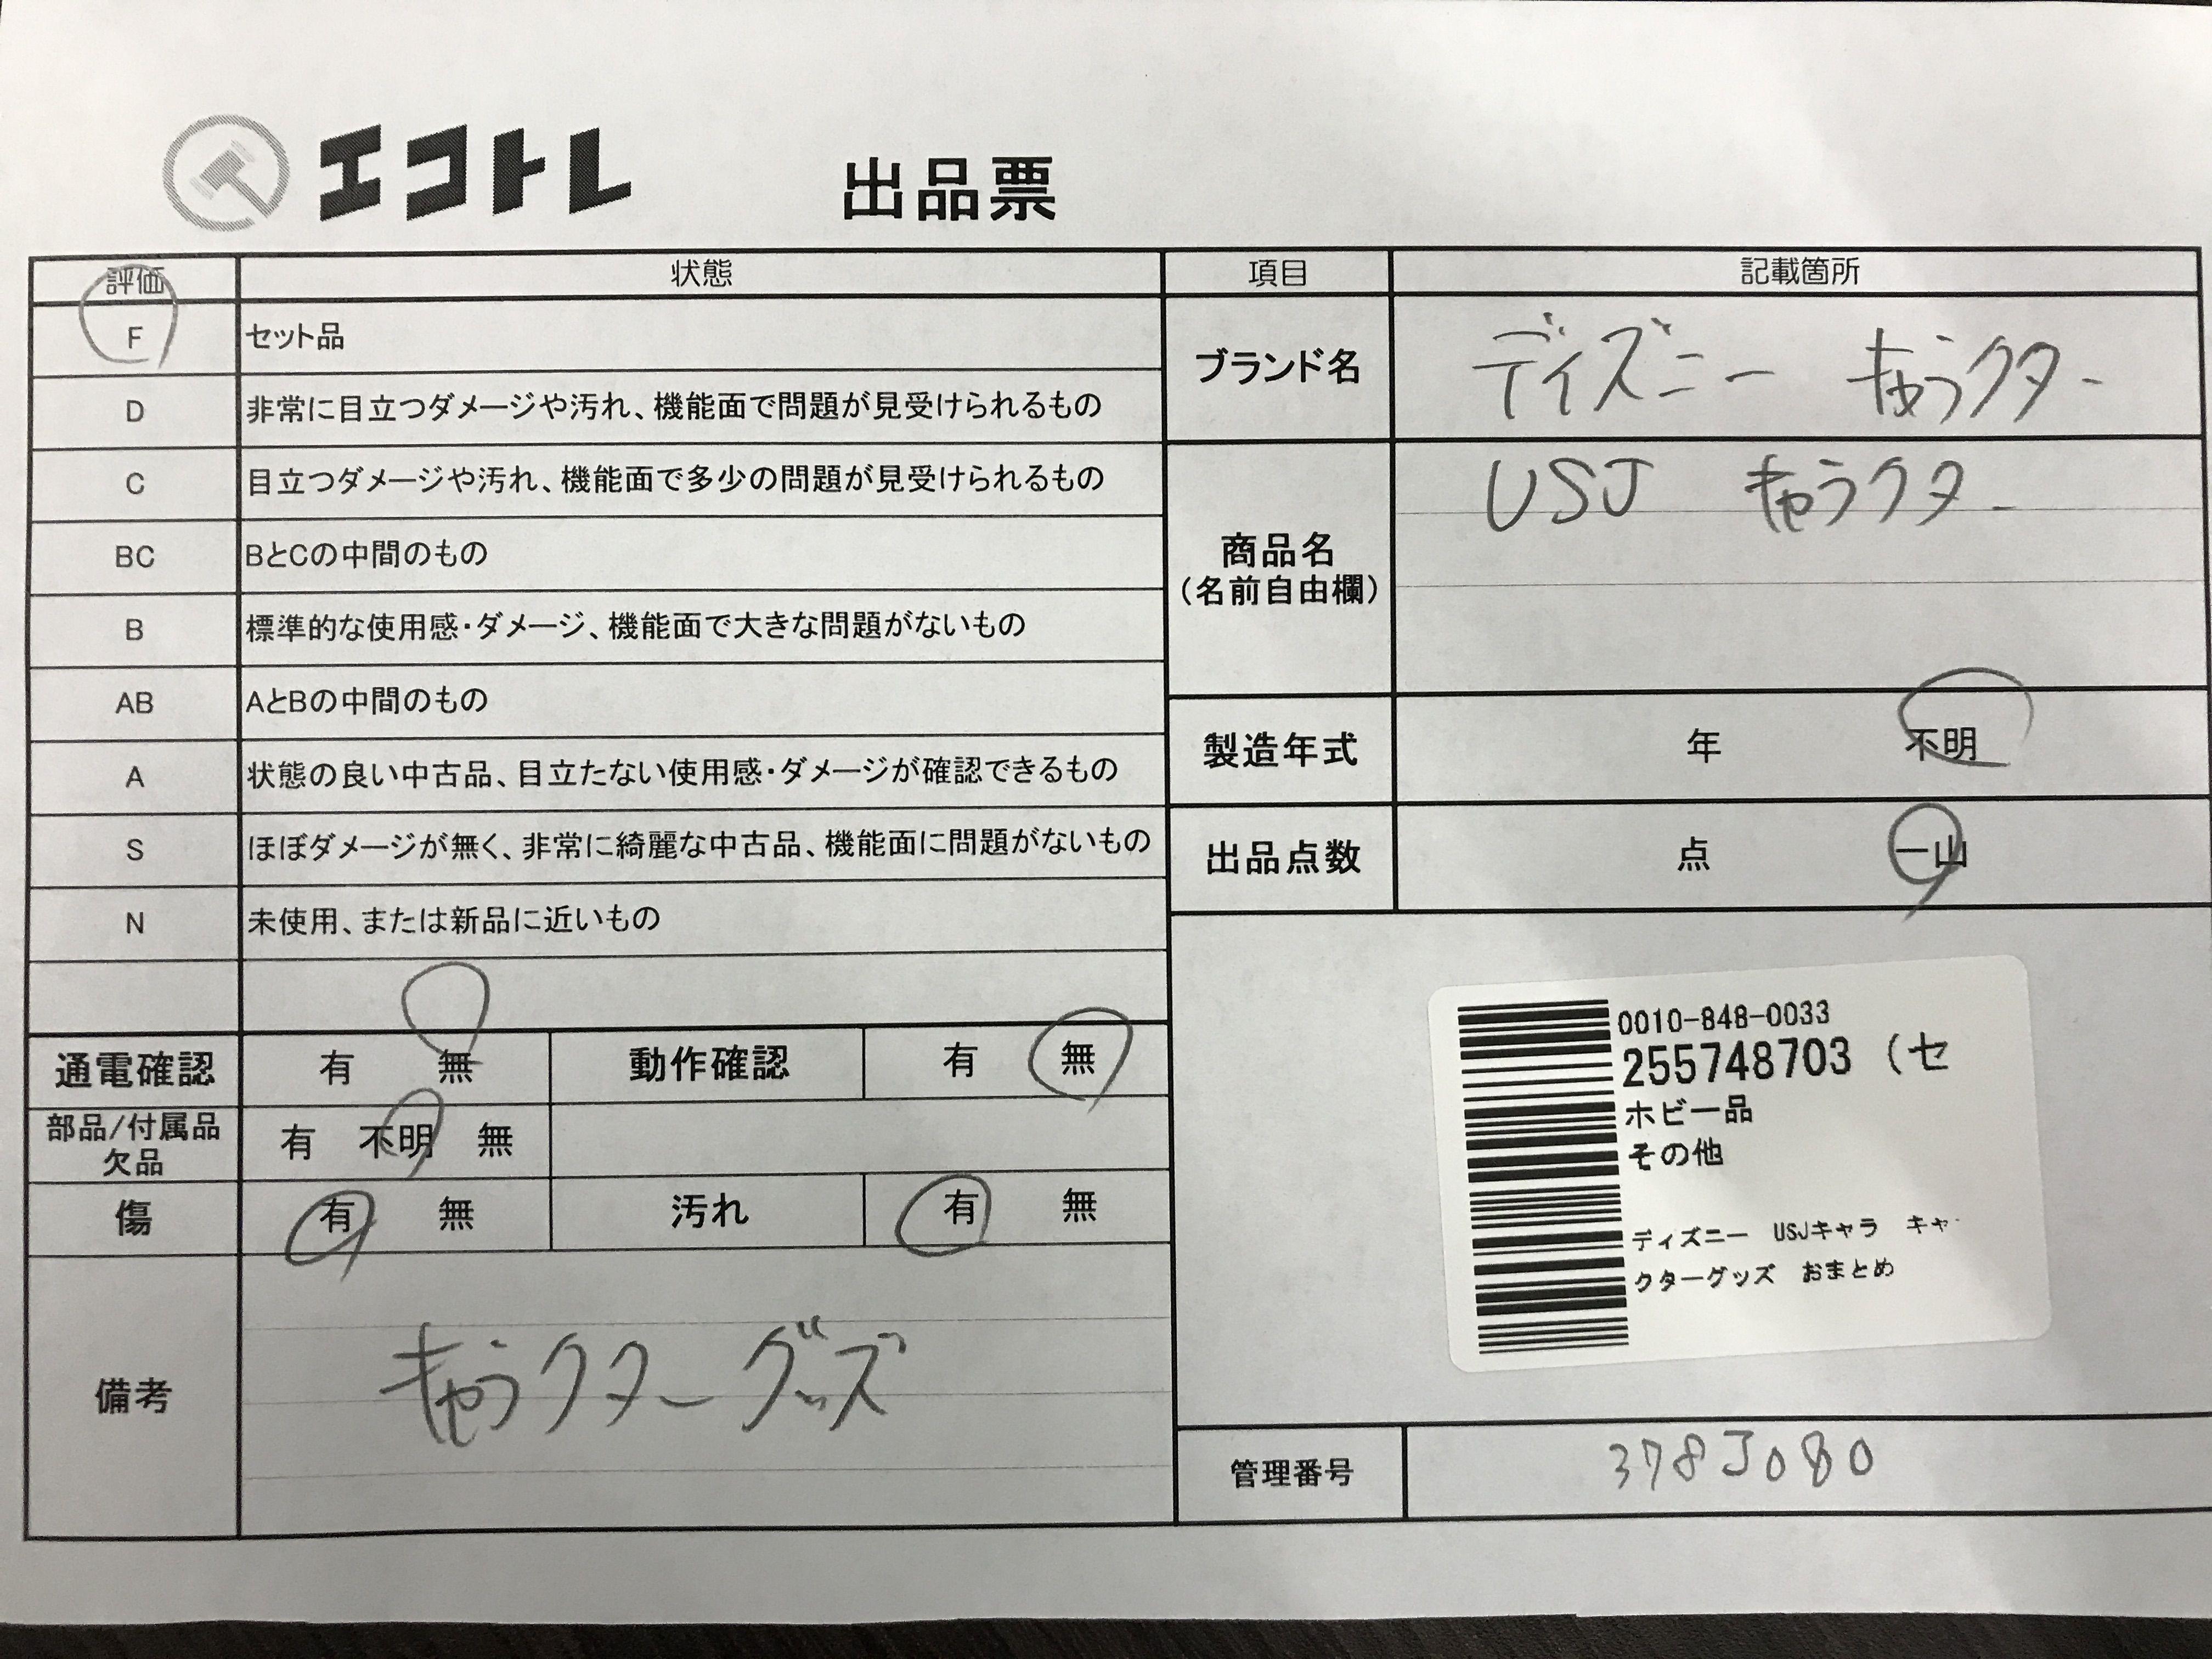 エコトレ 出品票
評価 状態 項目 記載箇所
F セット品
D 非常に目立つダメージや汚れ、機能面で問題が見受けられるもの
C 目立つダメージや汚れ、機能面で多少の問題が見受けられるもの
BC BとCの中間のもの
B 標準的な使用感・ダメージ、機能面で大きな問題がないもの
AB AとBの中間のもの
A 状態の良い中古品、目立たない使用感・ダメージが確認できるもの
S ほぼダメージが無く、非常に綺麗な中古品、機能面に問題がないもの
N 未使用、または新品に近いもの
通電確認 有 無 動作確認 有 無
部品/付属品
欠品 有 不明 無
傷 有 無 汚れ 有 無
備考 キャラクターグッズ
ブランド名 ディズニー キャラクター
商品名
(名前自由欄)
USJ キャラクター
製造年式 年 不明
出品点数 点 一山
0010-848-0033
255748703 (セ
ホビー品
その他
ディズニー USJキャラ キャ
クターグッズ おまとめ
管理番号 378J080